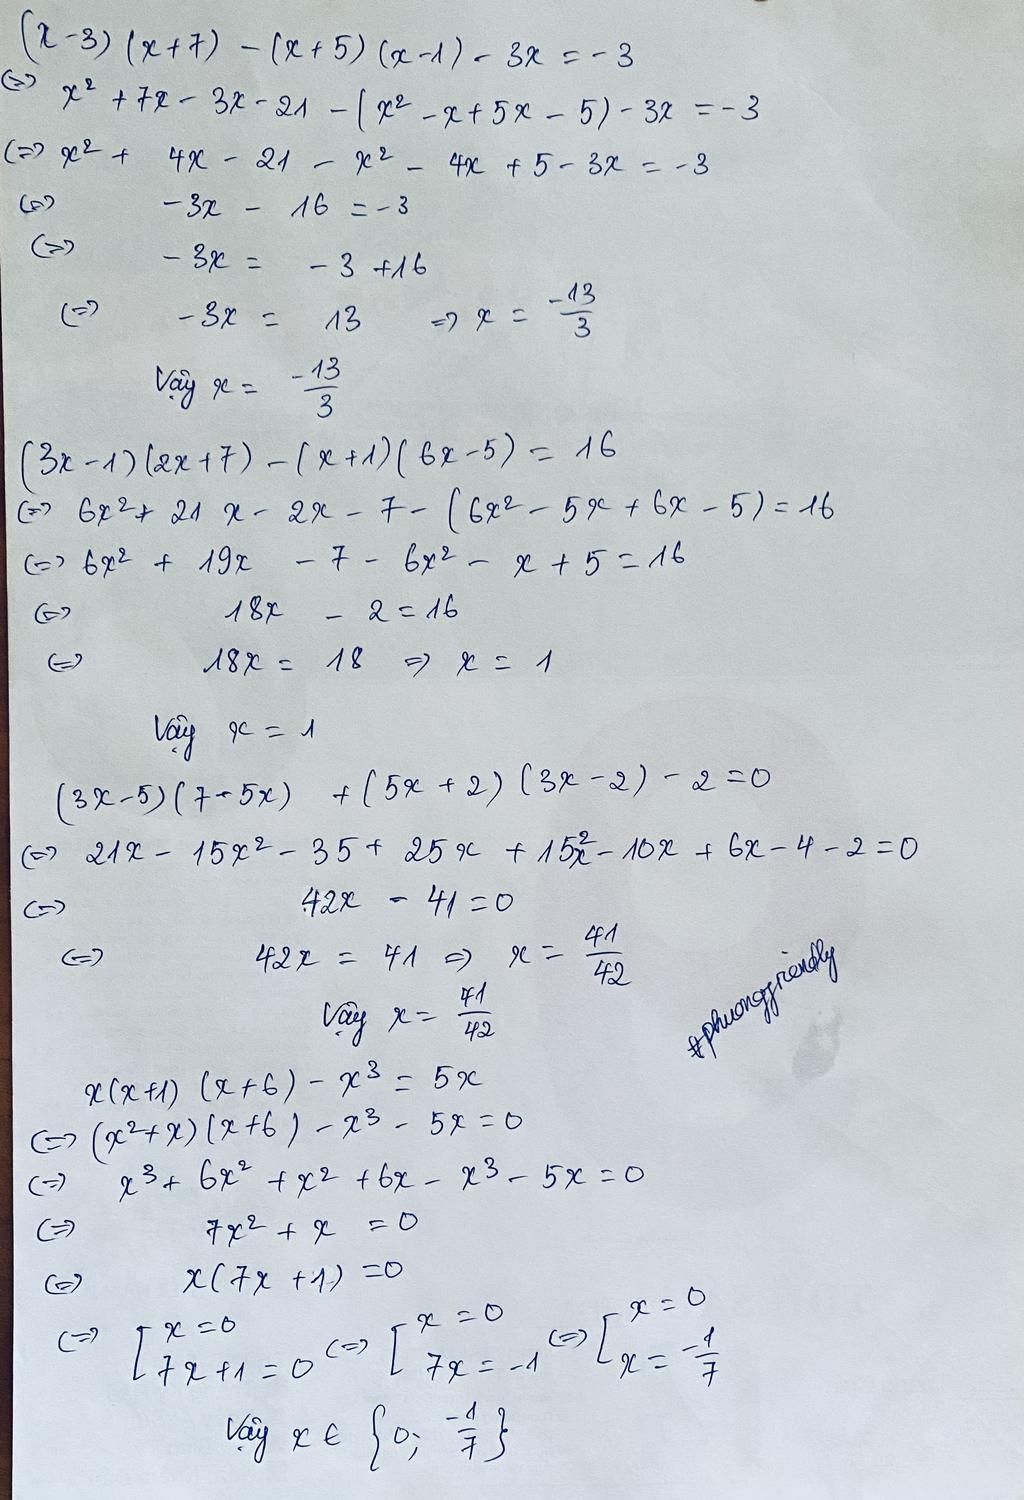 (x-3)(x+7) - (x+5)(x-1) - 3x = -3
(=) x² + 7x - 3x - 21 - (x² - x + 5x - 5) - 3x = -3
(=) x² + 4x - 21 - x² - 4x + 5 - 3x = -3
(=) -3x - 16 = -3
(=) -3x = -3 + 16
(=) -3x = 13 => x = -13/3
Vậy x = -13/3
(3x-1)(2x+7) - (x+1)(6x-5) = 16
(=) 6x² + 21x - 2x - 7 - (6x² - 5x + 6x - 5) = 16
(=) 6x² + 19x - 7 - 6x² - x + 5 = 16
(=) 18x - 2 = 16
(=) 18x = 18 => x = 1
Vậy x = 1
(3x-5)(7-5x) + (5x+2)(3x-2) - 2 = 0
(=) 21x - 15x² - 35 + 25x + 15x² - 10x + 6x - 4 - 2 = 0
(=) 42x - 41 = 0
(=) 42x = 41 => x = 41/42
Vậy x = 41/42
#phuongfriendly
x(x+1)(x+6) - x³ = 5x
(=) (x²+x)(x+6) - x³ - 5x = 0
(=) x³ + 6x² + x² + 6x - x³ - 5x = 0
(=) 7x² + x = 0
(=) x(7x+1) = 0
(=) [ x = 0 (=) [ x = 0 (=) [ x = 0
7x + 1 = 0 7x = -1 x = -1/7
Vậy x ∈ {0; -1/7}